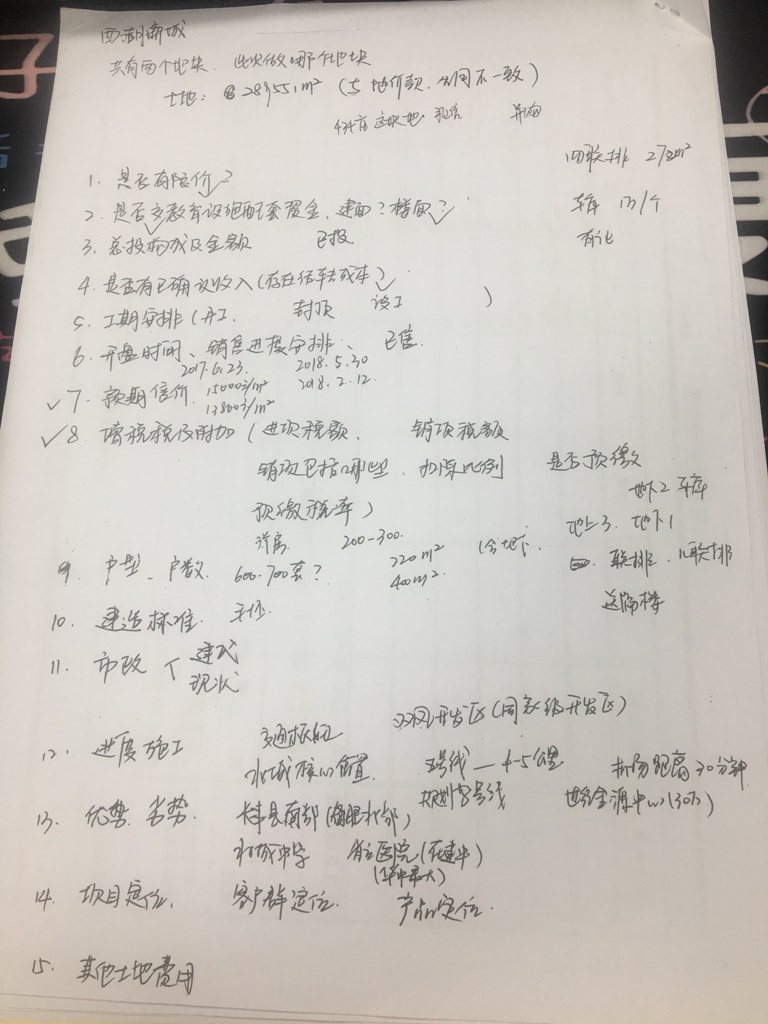 共有两个地块, 此次做哪个地块
土地: 289551m² (与地价款、合同不一致)
434亩 这块地
四联排 272m²
1. 是否有限价?
2. 是否交教育设施配套资金, 建面? 楼面?
车库 13/个
3. 总投构成及金额 已投
4. 是否有已确认收入(存在结转成本)
5. 工期安排(开工、封顶 竣工 )
6. 开盘时间、销售进度安排、已售
2017.6.23. 2018.5.30
7. 预期售价. 15000元/m² 2018.2.12.
13800元/m²
8. 增值税及附加(进项税额、 销项税额
销项包括哪些、扣除比例 是否预缴
预缴税率)
地下2 车库
洋房 200-300. 220m² (含地下. 地上3. 地下1
9. 户型、户数. 600-700套? 400m² 四. 联排、八联排
送隔楼
10. 建造标准.
11. 市政 建成
现状
双凤开发区(国家级开发区)
12. 进度施工 交通枢纽
水城核心位置 号线 — 4-5公里 距离30分钟
规划8号线 中心(30万)
13. 优势 劣势. 长丰县南部(合肥北部)
中学 医院(在建中)
(华中最大)
14. 项目定位. 客户群定位. 产品定位.
15. 其他土地费用